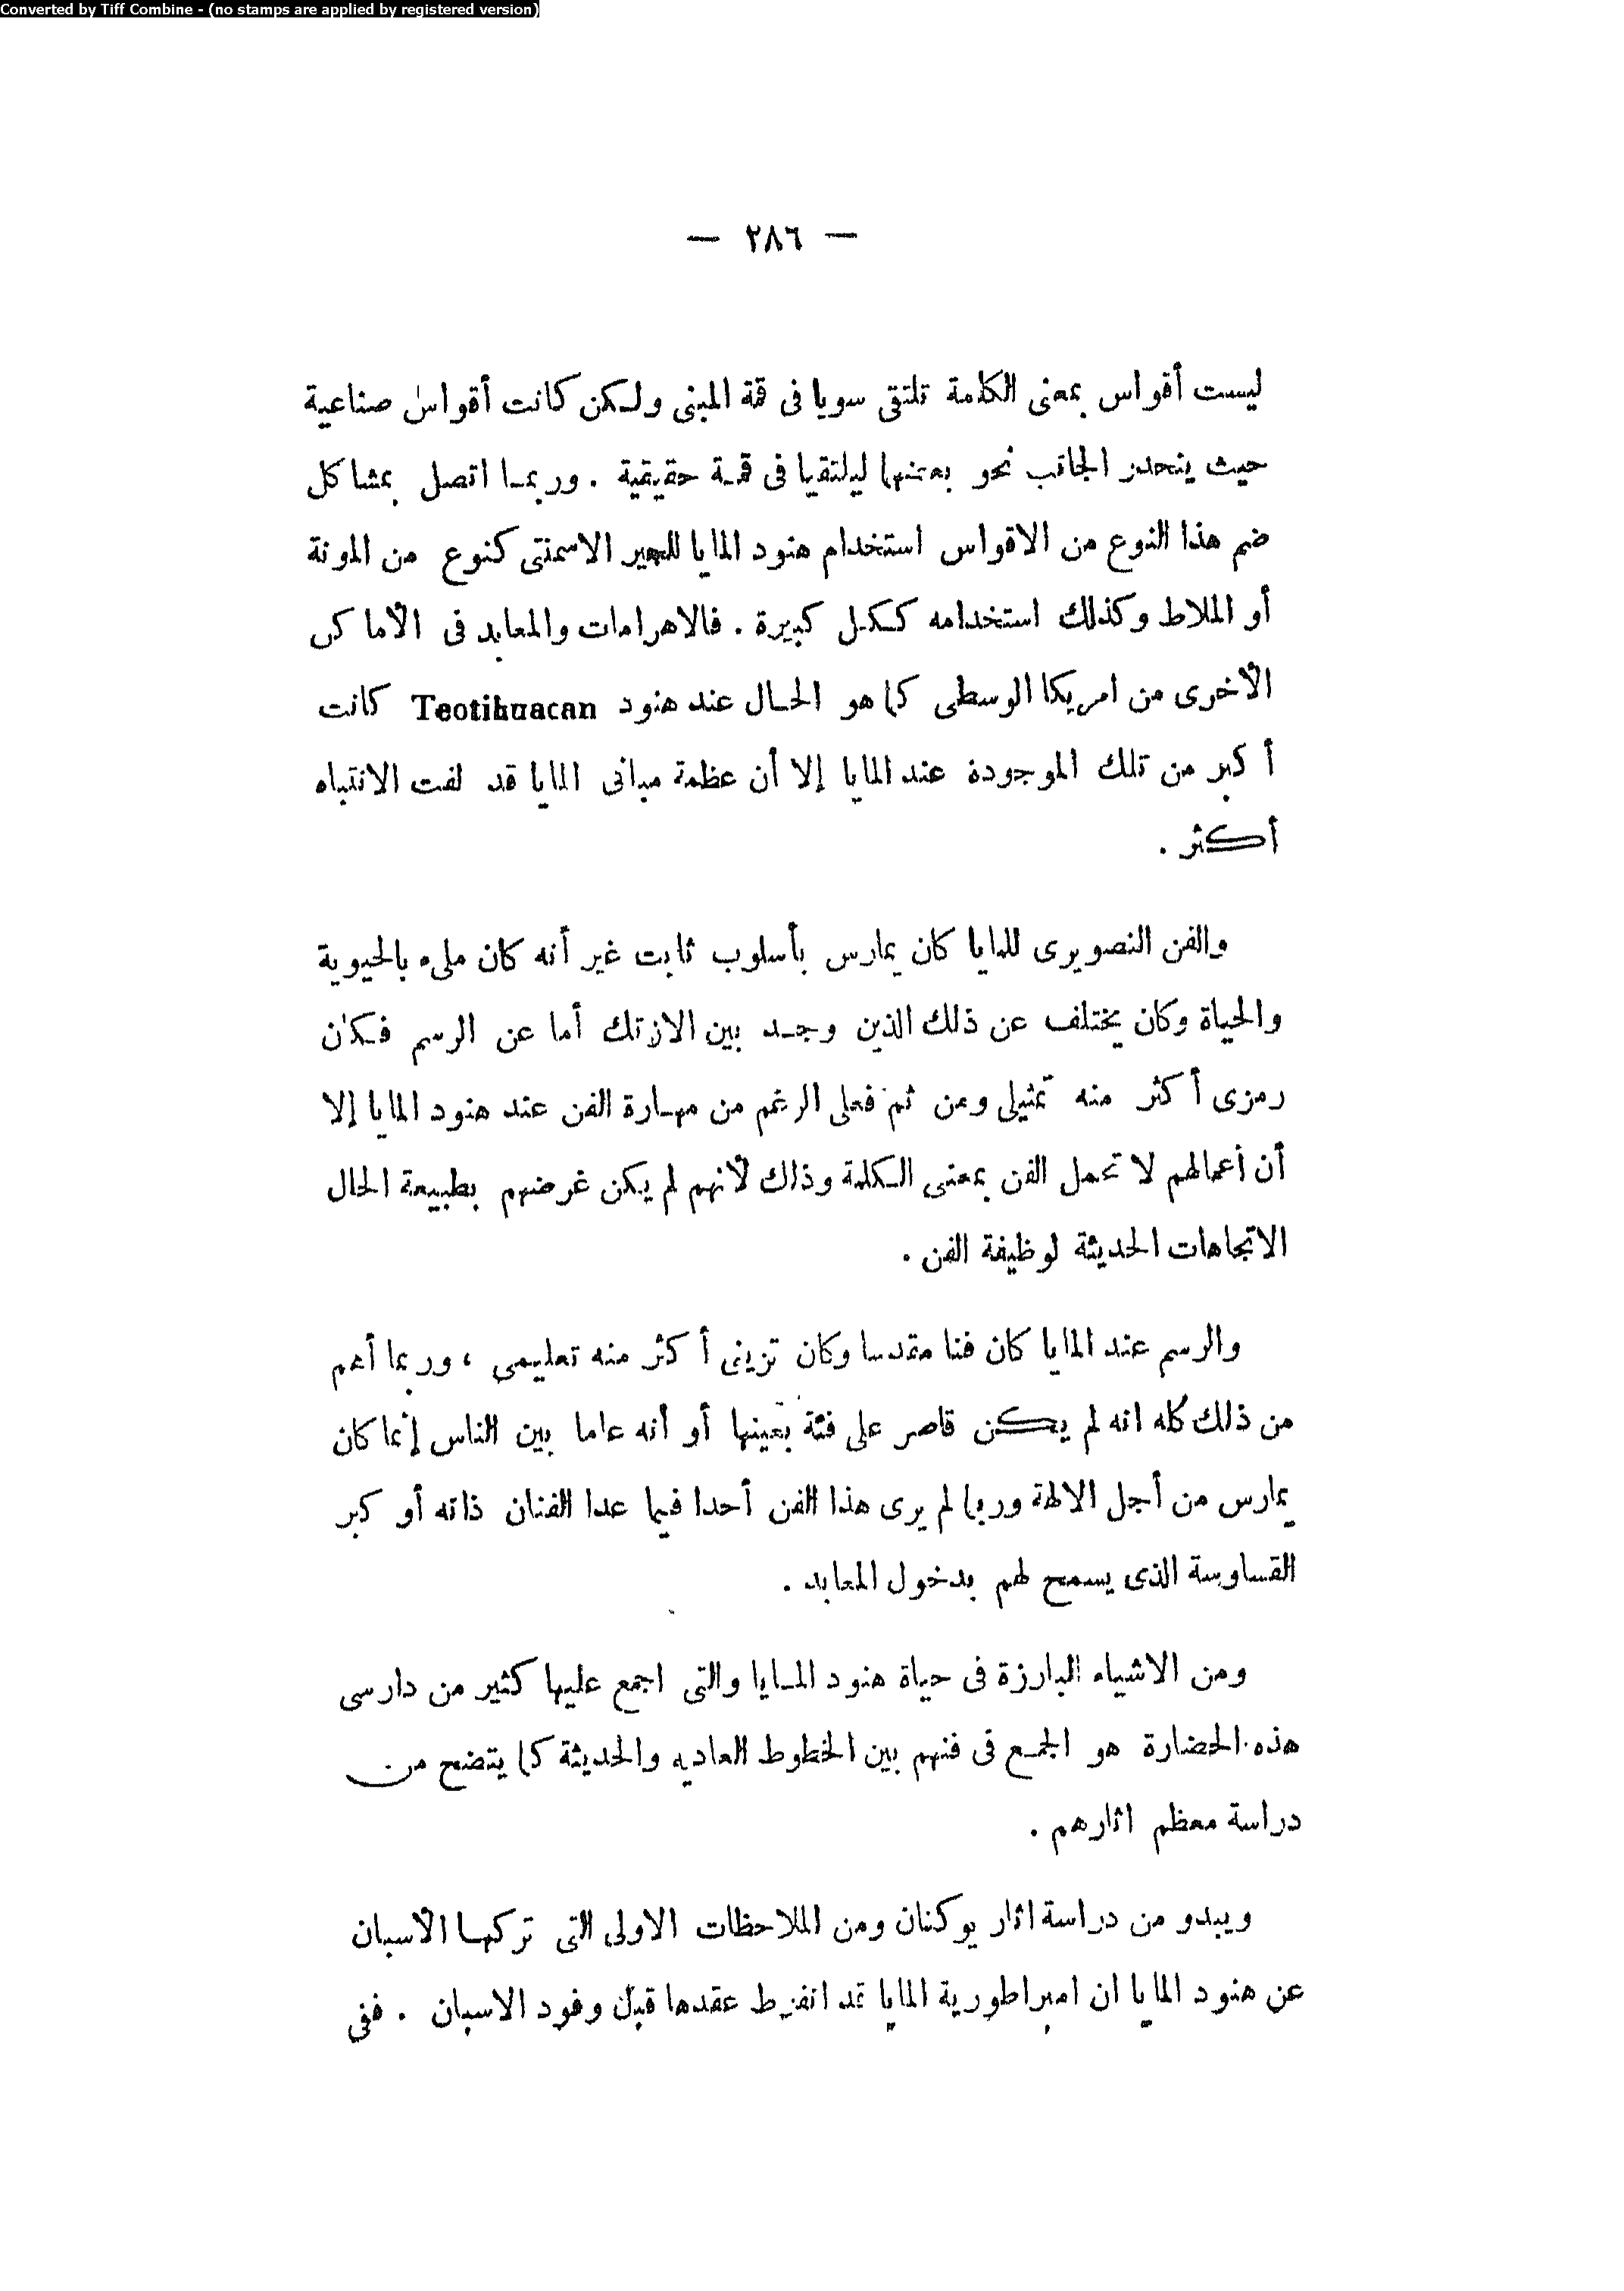 Converted by Tiff Combine - (no stamps are applied by registered version)
— ٢٨٦ —
ليست أقواس بمعنى الكلمة تلتقى سويا فى قمة المبنى ولكن كانت أقواس صناعية
حيث ينحدر الجانب نحو بعضها ليلتقيا فى قمة حقيقية . وربما اتصل بمشاكل
ضم هذا النوع من الاقواس استخدام هنود المايا للجير الاسمنتى كنوع من المونة
أو الملاط وكذلك استخدامه ككل كبيرة . فالاهرامات والمعابد فى الأماكن
الأخرى من امريكا الوسطى كما هو الحال عند هنود Teotihuacan كانت
أكبر من تلك الموجودة عند المايا إلا أن عظمة مبانى المايا قد لفت الانتباه
أكثر .
والفن التصويرى للمايا كان يمارس بأسلوب ثابت غير أنه كان ملىء بالحيوية
والحياة وكان يختلف عن ذلك الذين وجد بين الازتك أما عن الرسم فكان
رمزى أكثر منه تمثيلى ومن ثم فعلى الرغم من مهارة الفن عند هنود المايا إلا
أن أعمالهم لا تحمل الفن بمعنى الكلمة وذلك لأنهم لم يكن غرضهم بطبيعة الحال
الاتجاهات الحديثة لوظيفة الفن .
والرسم عند المايا كان فنا مقدسا وكان تزينى أكثر منه تعليمى ، وربما أهم
من ذلك كله انه لم يكن قاصر على فئة بعينها أو أنه عاما بين الناس إنما كان
يمارس من أجل الالهة وربما لم يرى هذا الفن أحدا فيما عدا الفنان ذاته أو كبر
القساوسة الذى يسمح لهم بدخول المعابد .
ومن الاشياء البارزة فى حياة هنود المايا والتى اجمع عليها كثير من دارسى
هذه الحضارة هو الجمع فى فنهم بين الخطوط العاديه والحديثة كما يتضح من
دراسة معظم اثارهم .
ويبدو من دراسة اثار يوكتان ومن الملاحظات الاولى التى تركها الأسبان
عن هنود المايا ان امبراطورية المايا قد انفرط عقدها قبل وفود الاسبان . ففى